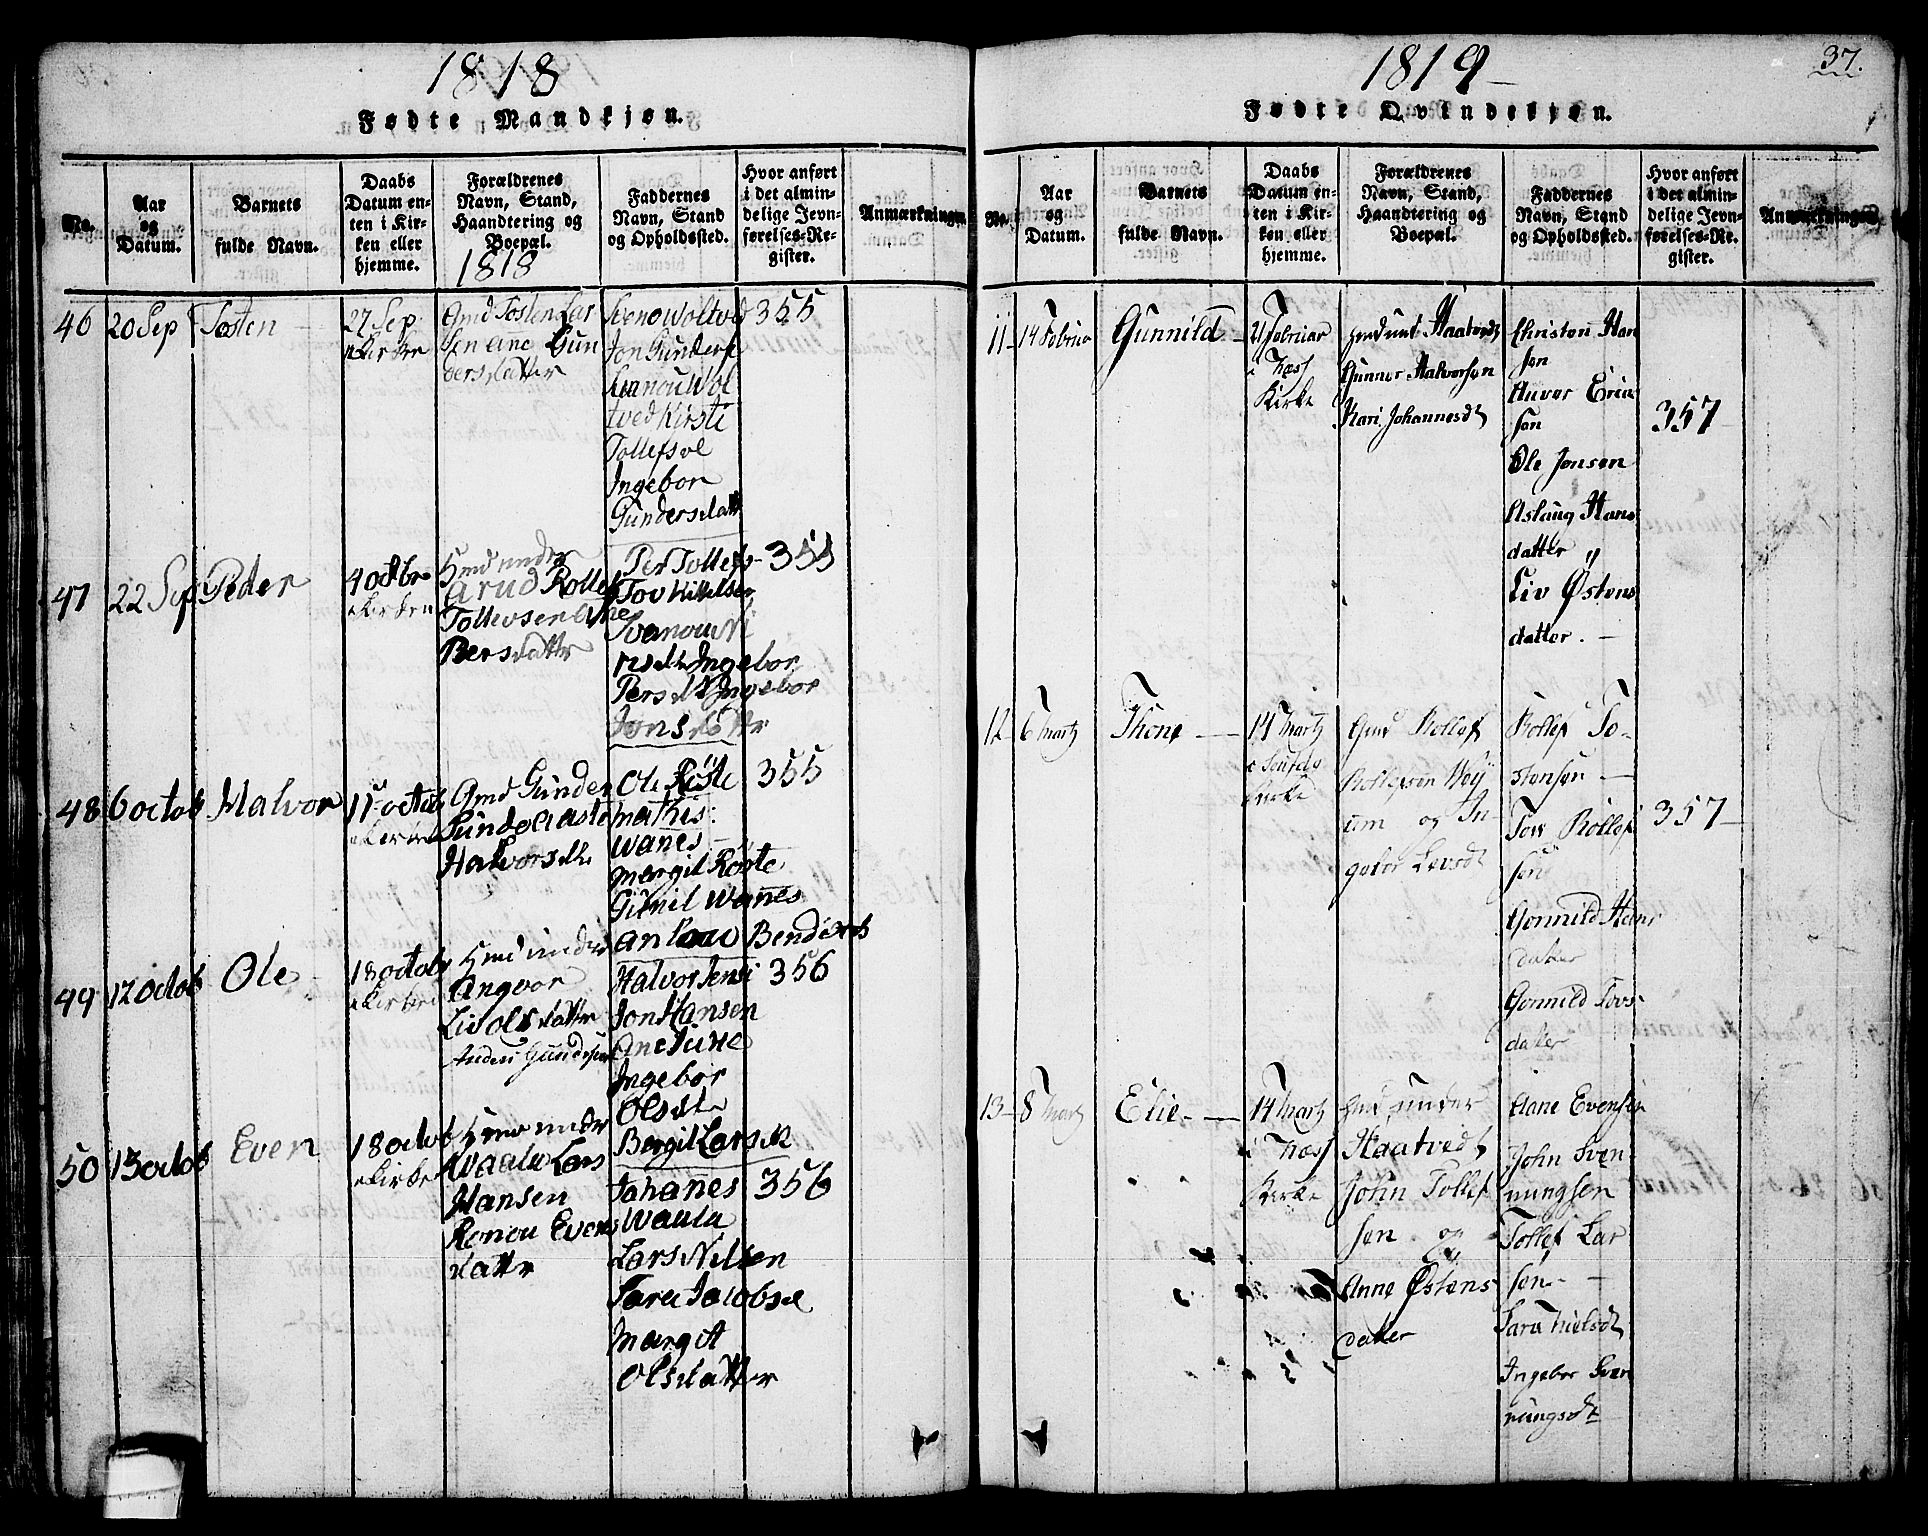 1818
Fødte Mandkjøn.
No.
Aar
og
Datum.
Barnets
fulde Navn.
Daabs
Datum en-
ten i Kir-
ken eller
hjemme.
Forældrenes
Navn, Stand,
Haandtering og
Boepæl.
1818
Faddernes
Navn, Stand
og Opholdssted.
Hvor anført
i det almin-
delige Jevn-
førelses-Re-
gister.
Anmærkninger.
46
20 Sep
Tosten
27 Sep
Kirken
Gmd Tosten Lar
sen ane Gun
dersdatter
Jon Gunders
Kirsti
Ingebor
Gundersdatt
355
47
22 Sep
Peder
4 octbr
Kirken
Hmd under
Tollevsen
Persdattr
Per Tollefs
Tov Kittelsen
Ingebor
Persdt Ingebor
Jonsdattr
355
48
6 octob
Halvor
11 octob
Kirken
Gmd Gunder
Halvorsdtr
Ole Röste
mathis
wanes
margit Röste
Gunil wanes
355
49
12 octob
Ole
18 octob
Kirken
Hmd under
Angvor
Liv olsdattr
Anders Gundersen
Halvor Jensi
Jon Hansen
Ane
Ingebor
Olsdtr
Bergit Larsdt
356
50
13 octob
Even
18 octob
Kirken
Hmd under
Waala Lars
Hansen
Ronou Evens
dattr
Johanes
Waala
Lars Nilsen
Sara Jacobsd
Margit
Olsdatter
356
1819
37.
Fødte Qvindekjøn.
No.
Aar
og
Datum.
Barnets
fulde Navn.
Daabs
Datum en-
ten i Kir-
ken eller
hjemme.
Forældrenes
Navn, Stand,
Haandtering og
Boepæl.
Faddernes
Navn, Stand
og Opholdssted.
Hvor anført
i det almin-
delige Jevn-
førelses-Re-
gister.
Anmærkninger.
11
14 Februar
Gunnild
21 Februar
i Næss
Kirke
Hmd unt Haatvedt
Gunner Halvorsen
Kari Johannesdt
Christen Han
sen
Halvor Erik
sen
Ole Jonsen
Aslaug Hans
datter
Liv Østens
datter.
357
12
6 Martz
Thone
14 Martz
i
Kirke
Gmd Rollef
Rollefsen
um og In
gebor Levsdt
Rollef To-
stensen
Tov Rollef
sen
Gonnild Hans
datter
Gonnild Tovs
datter
357
13
8 Martz
Elie
14 Martz
i Næss
Kirke
Hmd under
Haatvedt
John Tollef
sen og
Anne Østens
datter
Hans Evensen
John Sven
nungsen
Tollef Lar
sen
Sara Nielsdt
Ingebor Sven
nungsdt